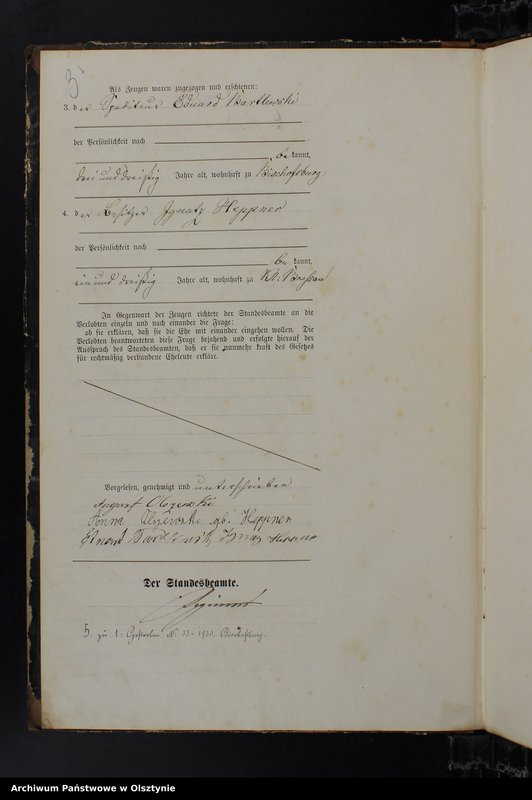 3
Als Zeugen waren zugezogen und erschienen:
3. der Spediteur Eduard Bartlewski
der Persönlichkeit nach
be kannt,
drei und dreißig Jahre alt, wohnhaft zu Bischofsburg
4. der Besitzer Ignatz Heppner
der Persönlichkeit nach
be kannt,
ein und dreißig Jahre alt, wohnhaft zu Kl.
In Gegenwart der Zeugen richtete der Standesbeamte an die
Verlobten einzeln und nach einander die Frage:
ob sie erklären, daß sie die Ehe mit einander eingehen wollen. Die
Verlobten beantworteten diese Frage bejahend und erfolgte hierauf der
Ausspruch des Standesbeamten, daß er sie nunmehr kraft des Gesetzes
für rechtmäßig verbundene Eheleute erkläre.
Vorgelesen, genehmigt und unterschrieben
August
Anna gb. Heppner
Der Standesbeamte.
zu 1: Gestorben N. 33 - 1930. Bischofsburg.
Archiwum Państwowe w Olsztynie